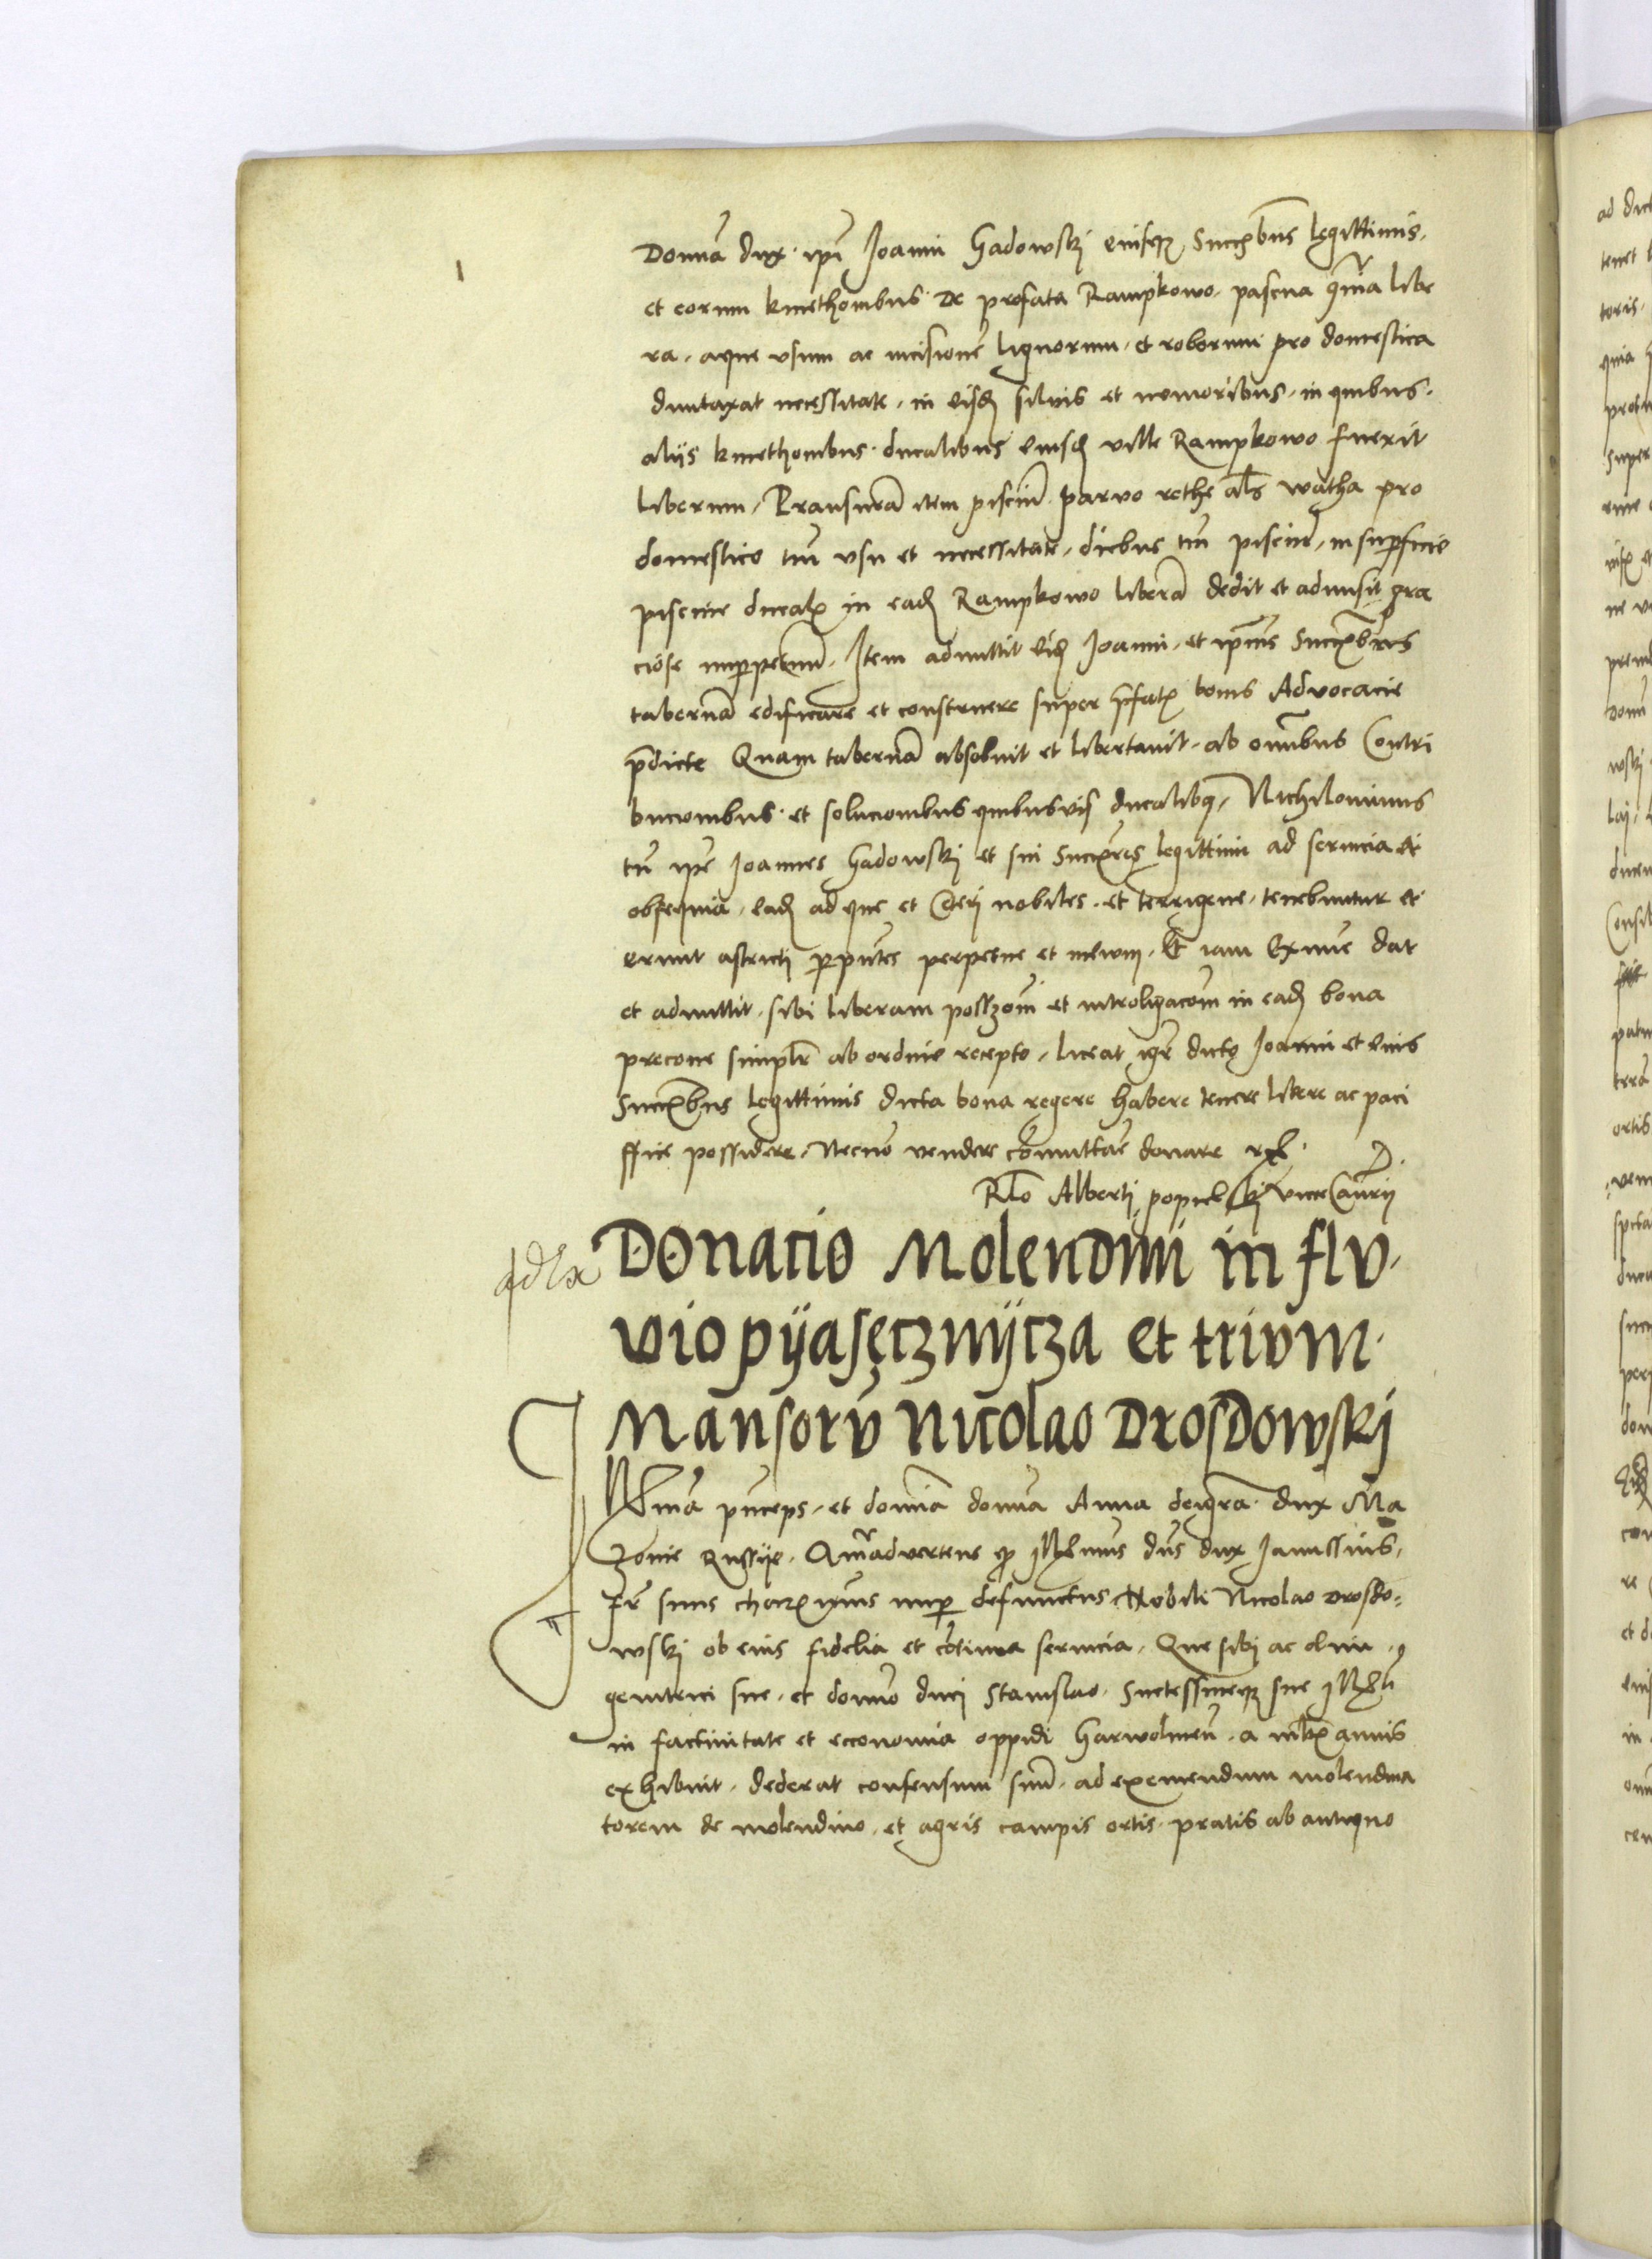 Domna dux ipi Joanni Gadowskj eiusq3 Succibus legittimis.
et eorum kmethonibus De prefata Rampkowo pascua omnia libe
ra, atque usum ac incisione lignorum et roborum pro domestica
duntaxat necessitate, in eisd silvis et nemoribus, in quibus.
aliis kmethonibus ducalibus eiusd ville Rampkowo fuerit
liberum, item parvo rethe als watha pro
domestico tm usu et necessitate, diebus tm in superficie
piscine ducal in ead Rampkowo libera dedit et admisit gra
ciose inperpetuum. Item admittit eid Joanni, et ipius Succibus
taberna edificare et construere super pfatis bonis Advocacie
pdicte Quam taberna absoluit et libertauit ab omibus Contri
bucionibus et solucionibus quibusuis ducalibq, Nichilominus
tn ipe Joannes Gadowskj et sui Succres legittimi ad seruicia et
obsequia, ead ad que et Ceterj nobiles et terrigene tenebuntur et
erunt astricti perpetue et in ewm. Et iam Ex nunc dat
et admittit sibi liberam possessom et introligacom in ead bona
precone simplr ab ordine recepto, liceat igr dicto Joanni et eius
Succibus legittimis dicta bona regere habere tenere libere ac paci
ffice possidere, Necno vendere comuttare donare
Rlo Alberti popielskj vice Canrij
Donacio Molendini in flu
vio pyasęcznycza et trivm
Mansorv Nicolao Drosdowskj
Illma pnceps, et domina domna Anna dei gra dux Ma
zouie Russije. Animadvertens q Illmus dns dux Janussius,
fr suus charissimus nup defunctus Nobili Nicolao Drosdo:
wskj ob eius fidelia et cotinua seruicia, Que sibi ac olim
genitrici sue, et domno ducj Stanislao
in factiuitate et economia oppidi Garwolinen a mltis annis
exhibuit, dederat consensum suum ad exemendum molendina
torem de molendino, et agris campis ortis pratis ab antiquo